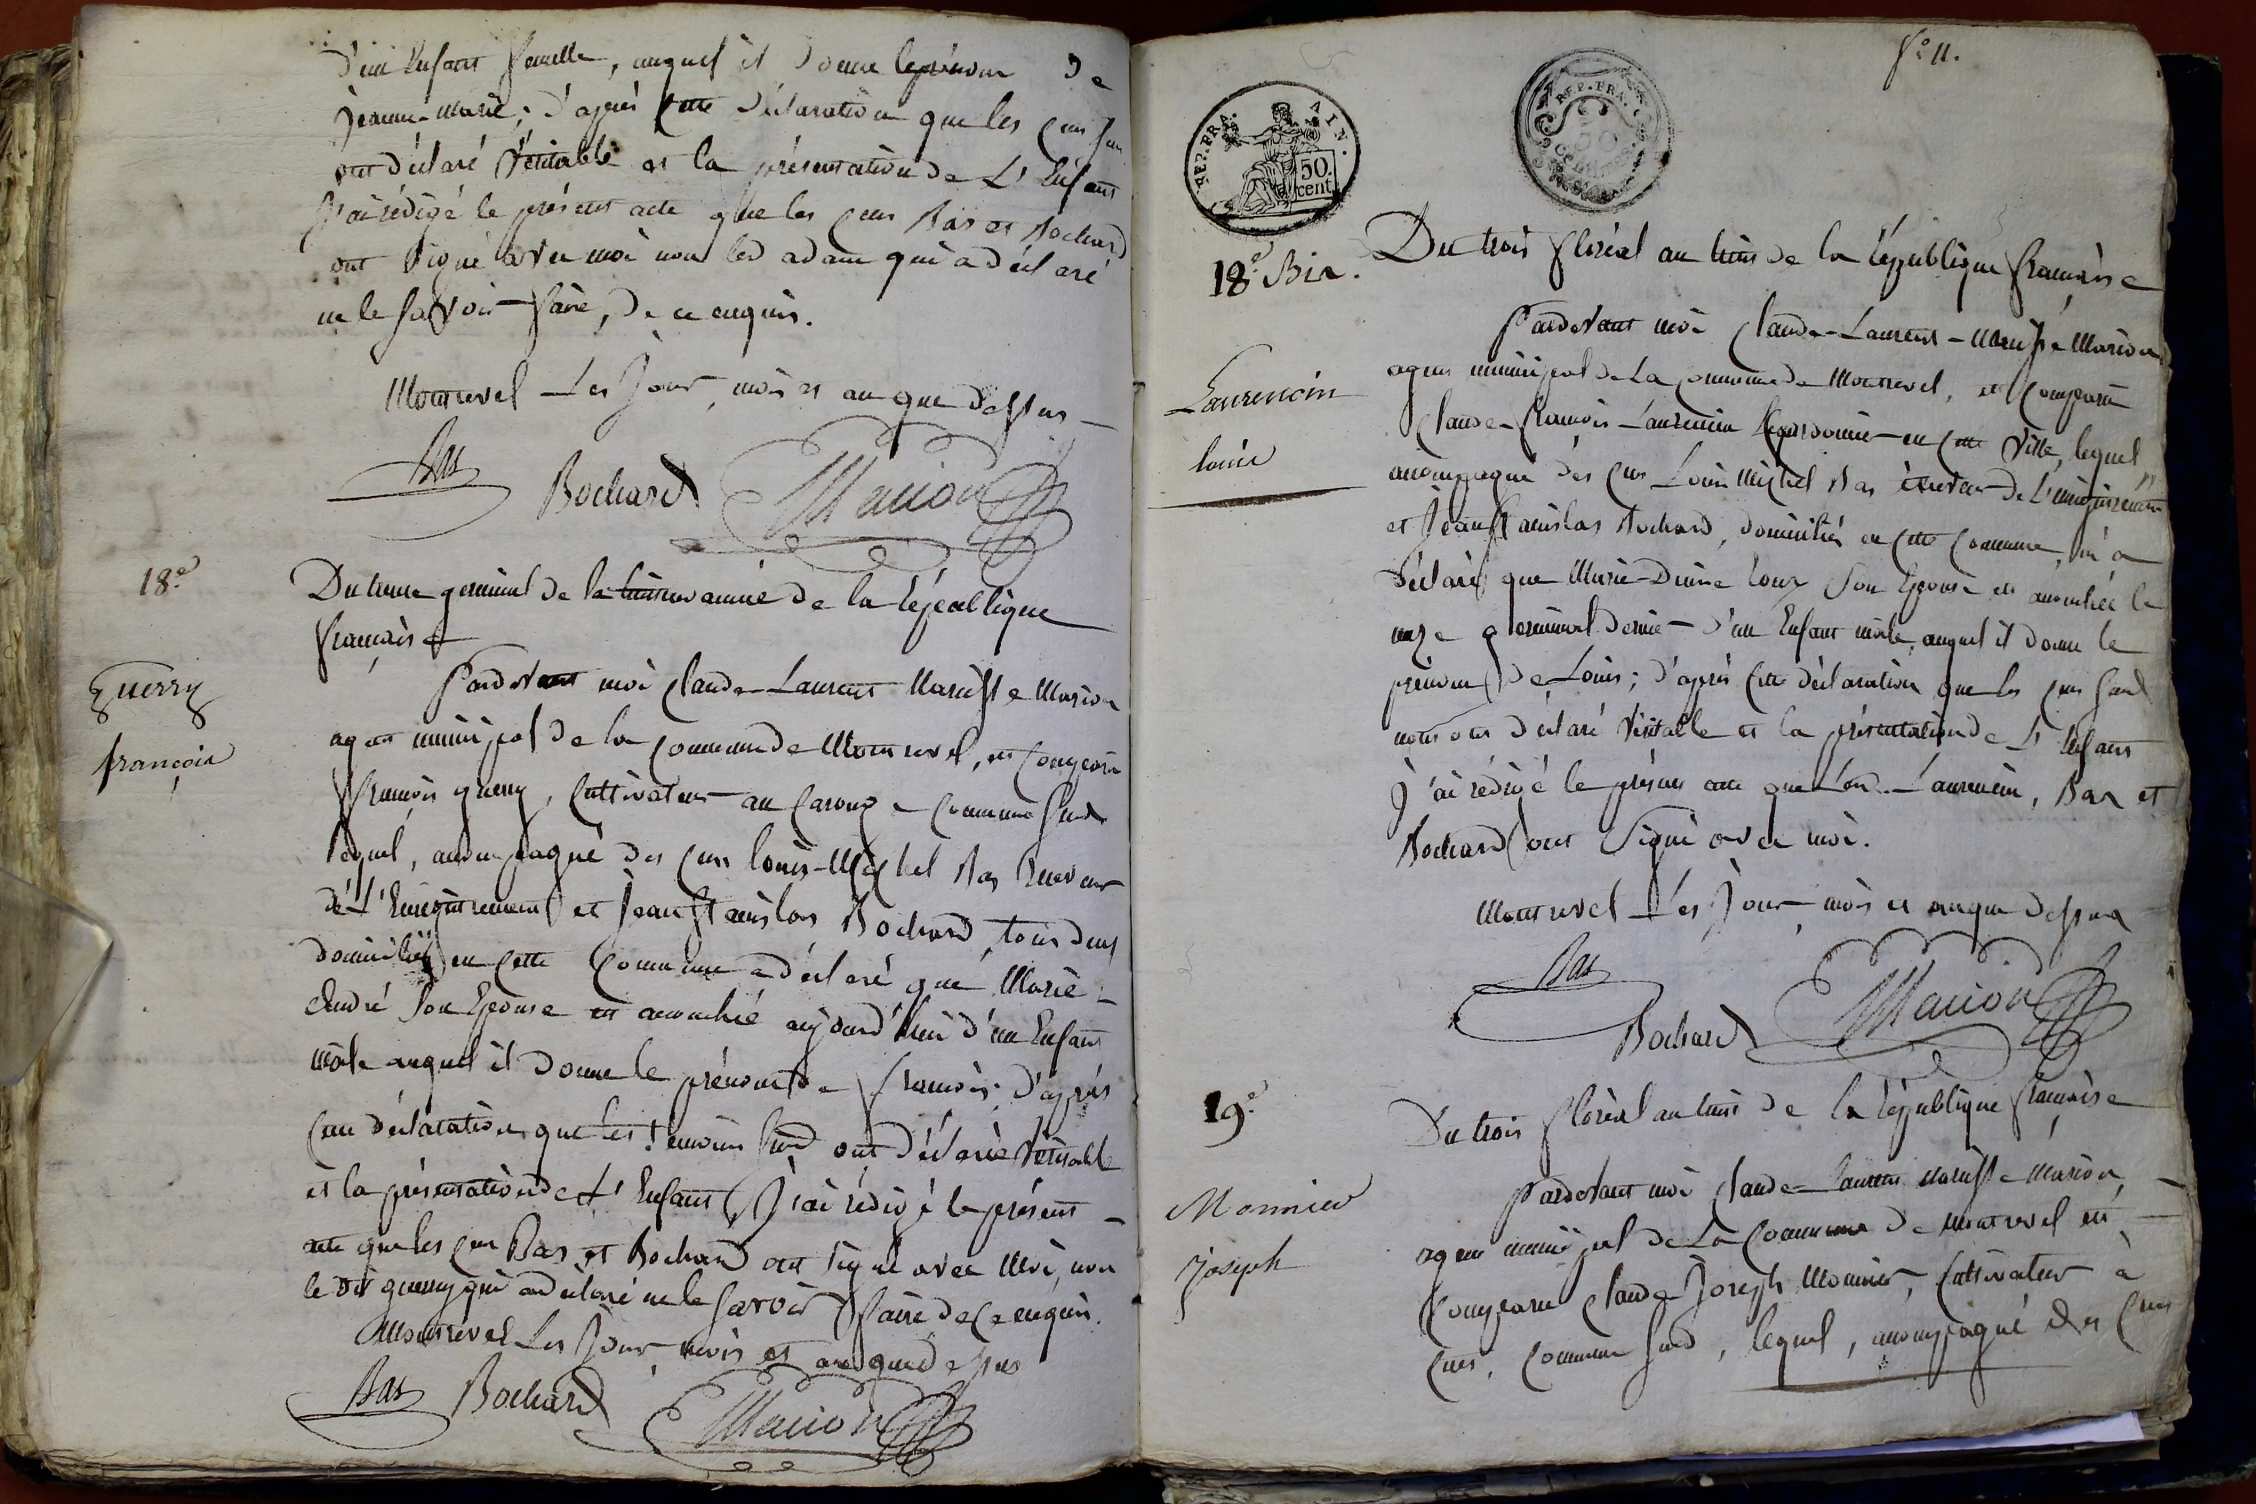 d'un Enfant femelle, auquel il donne le prénom de
Jeanne-Marie; d'après cette déclaration que les cens sus
ont déclaré véritable et la présentation de L'Enfant
J'ai rédigé le présent acte que les cens Bas et Bochard
ont signé avec moi non led adam qui a déclaré
ne le savoir faire, de ce enquis.
Montrevel Les Jour, mois et an que dessus
Bas
Bochard
Marion
18.e
Guerry
françois
Du germinal de la année de la République
française
Pardevant moi Claude-Laurent Marion
agent municipal de la commune de Montrevel, est comparu
François guerry, Cultivateur au commune susd
lequel, accompagné des cens louis-Michel Bas Receveur
de L'Enregistrement et Jean Stanislas Bochard, tous deux
domiciliés en cette Commune a déclaré que Marie
André son Epouse est accouchée aujourd'hui d'un Enfant
mâle auquel il donne le prénom de François; d'après
cette déclaration que les témoins susd ont déclaré véritable
et la présentation de L'Enfant, J'ai rédigé le présent
acte que les cens Bas et Bochard ont signé avec Moi, non
le dit guerry qui a déclaré ne le savoir faire de ce enquis.
Montrevel Les Jour, mois et an que dessus
Bas Bochard
Marion
fo 11.
REP. FRA. AIN.
50 cent
REP. FRA.
18.e Bis.
Laurencin
louis
Du trois floréal an huit de la République française
Pardevant moi Claude-Laurent- Marion
agent municipal de La commune de Montrevel, est comparu
Claude-François Laurencin cordonnier en cette ville, lequel
accompagné des cens Louis Michel Bas receveur de L'enregistrement
et Jean Stanislas Bochard, domiciliés en cette commune, m'a
déclaré que Marie son Epouse est accouchée le
onze germinal dernier d'un Enfant mâle, auquel il donne le
prénom de Louis; d'après cette déclaration que les cens susd
nous ont déclaré véritable et la présentation de L'Enfant
J'ai rédigé le présent acte que Led. Laurencin, Bas et
Bochard ont signé avec moi.
Montrevel Les Jour mois et an que dessus
Bas
Bochard
Marion
19.e
Monnier
Joseph
Du trois floréal an huit de la République française
Pardevant moi Claude-Laurent Marion
agent municipal de La Commune de montrevel est
Comparu Claude Joseph Monnier, Cultivateur à
commune susd, lequel, accompagné des cens